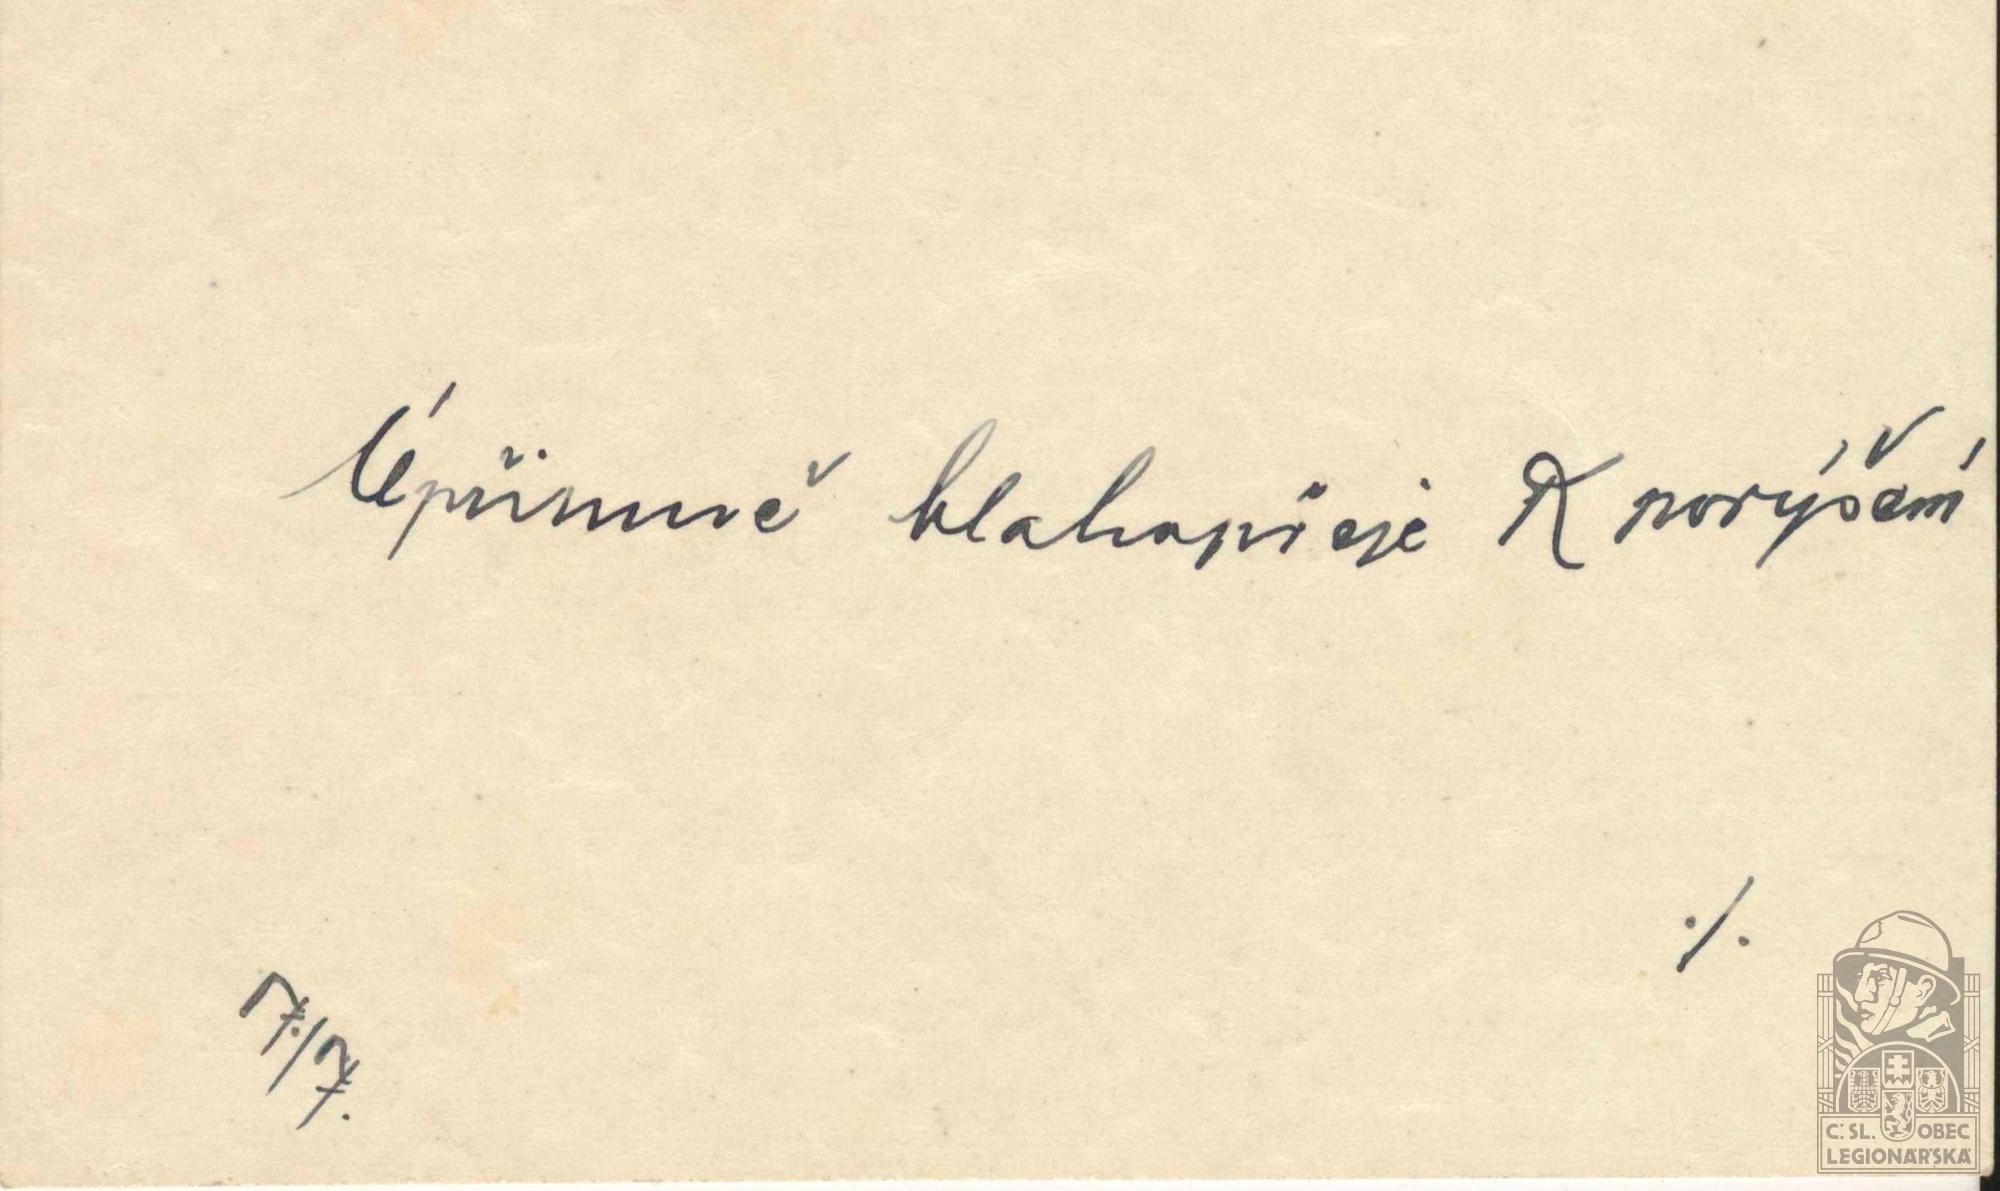 Upřimně blahopřeje K povýšení
./.
7./7.
Č. SL. OBEC
LEGIONÁŘSKÁ